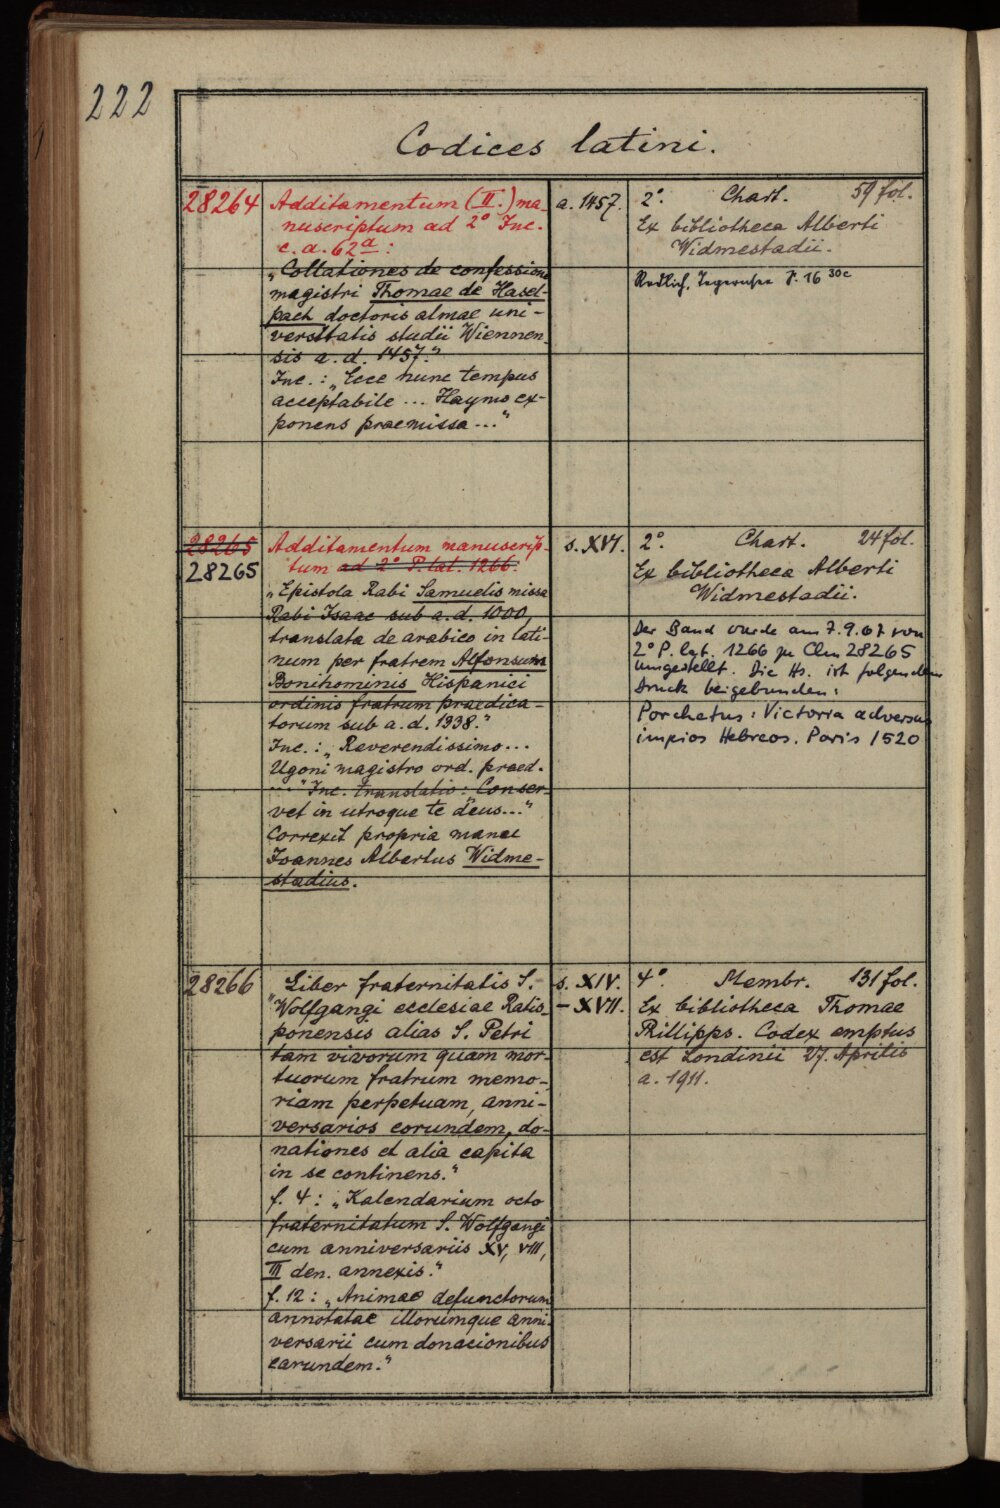 222
Codices latini.
28264
Additamentum (II.) ma-
nuscriptum ad 2° Inc.
c. a. 62ª:
„Collationes de confessione
magistri Thomae de Hasel-
pach doctoris almae uni-
versitatis studii Wiennen-
sis a. d. 1457."
Inc.: „Ecce nunc tempus
acceptabile ... Haymo ex-
ponens praemissa ..."
a. 1457.
2°. Chart. 59 fol.
Ex bibliotheca Alberti
Widmestadii.
Redlich, Tegernsee S. 16 30c
28265
28265
Additamentum manuscrip-
tum ad 2° P. lat. 1266.
„Epistola Rabi Samuelis missa
Rabi Isaac sub a. d. 1000,
translata de arabico in lati-
num per fratrem Alfonsum
Bonihominis Hispanici
ordinis fratrum praedica-
torum sub a. d. 1338."
Inc.: „Reverendissimo ...
Ugoni magistro ord. praed.
..." Inc. translatio: „Conser-
vet in utroque te deus..."
Correxit propria manu
Joannes Albertus Widme-
stadius.
s. XVI.
2°. Chart. 24 fol.
Ex bibliotheca Alberti
Widmestadii.
Der Band wurde am 7.9.67 von
2° P. lat. 1266 zu Clm 28265
umgestellt. Die Hs. ist folgendem
Druck beigebunden:
Porchetus: Victoria adversus
impios Hebreos. Paris 1520
28266
„Liber fraternitatis S.
Wolfgangi ecclesiae Ratis-
ponensis alias S. Petri
tam vivorum quam mor-
tuorum fratrum memo-
riam perpetuam, anni-
versarios eorundem, do-
nationes et alia capita
in se continens."
f. 4: „Kalendarium octo
fraternitatum S. Wolfgangi
cum anniversariis XV, VIII,
III den. annexis."
f. 12: „Animae defunctorum
annotatae illorumque anni-
versarii cum donacionibus
earundem."
s. XIV.
– XVII.
4°. Membr. 131 fol.
Ex bibliotheca Thomae
Phillipps. Codex emptus
est Londinii 27. Aprilis
a. 1911.